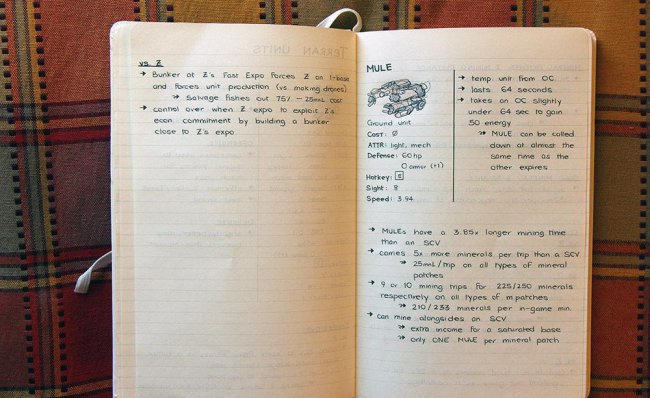 vs. Z
→ Bunker at Z's Fast Expo Forces Z on 1-base
and forces unit production (vs. making drones)
→ Salvage fishes out 75% - 25mnL cost
→ control over when Z expo to exploit Z's
econ commitment by building a bunker
close to Z's expo
TERRAN UNITS
MULE
Ground unit
Cost: Ø
ATTR: light, mech
Defense: 60hp
0 armor (+1)
Hotkey: E
Sight: 8
Speed: 3.94
→ temp. unit from OC.
→ lasts 64 seconds
→ takes an OC slightly
under 64 sec to gain
50 energy
→ MULE can be called
down at almost the
same time as the
other expires
→ MULEs have a 3.85x longer mining time
than an SCV
→ carries 5x more minerals per trip than a SCV
→ 25mnL/trip on all types of mineral
patches
→ 9 or 10 mining trips for 225/250 minerals
respectively on all types of m.patches
→ 210/233 minerals per in-game min.
→ can mine alongsides an SCV
→ extra income for a saturated base
→ only ONE MULE per mineral patch